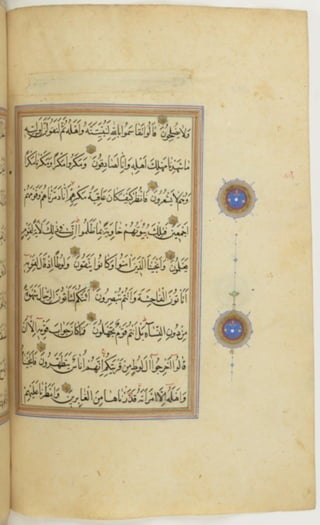 وَلَا يُصْلِحُونَ قَالُوا تَقَاسَمُوا بِاللَّهِ لَنُبَيِّتَنَّهُ وَأَهْلَهُ ثُمَّ لَنَقُولَنَّ لِوَلِيِّهِ
مَا شَهِدْنَا مَهْلِكَ أَهْلِهِ وَإِنَّا لَصَادِقُونَ وَمَكَرُوا مَكْرًا وَمَكَرْنَا مَكْرًا
وَهُمْ لَا يَشْعُرُونَ فَانْظُرْ كَيْفَ كَانَ عَاقِبَةُ مَكْرِهِمْ أَنَّا دَمَّرْنَاهُمْ وَقَوْمَهُمْ
أَجْمَعِينَ فَتِلْكَ بُيُوتُهُمْ خَاوِيَةً بِمَا ظَلَمُوا إِنَّ فِي ذَلِكَ لَآيَةً لِقَوْمٍ
يَعْلَمُونَ وَأَنْجَيْنَا الَّذِينَ آمَنُوا وَكَانُوا يَتَّقُونَ وَلُوطًا إِذْ قَالَ لِقَوْمِهِ
أَتَأْتُونَ الْفَاحِشَةَ وَأَنْتُمْ تُبْصِرُونَ أَئِنَّكُمْ لَتَأْتُونَ الرِّجَالَ شَهْوَةً
مِنْ دُونِ النِّسَاءِ بَلْ أَنْتُمْ قَوْمٌ تَجْهَلُونَ فَمَا كَانَ جَوَابَ قَوْمِهِ إِلَّا أَنْ
قَالُوا أَخْرِجُوا آلَ لُوطٍ مِنْ قَرْيَتِكُمْ إِنَّهُمْ أُنَاسٌ يَتَطَهَّرُونَ فَأَنْجَيْنَاهُ
وَأَهْلَهُ إِلَّا امْرَأَتَهُ قَدَّرْنَاهَا مِنَ الْغَابِرِينَ وَأَمْطَرْنَا عَلَيْهِمْ